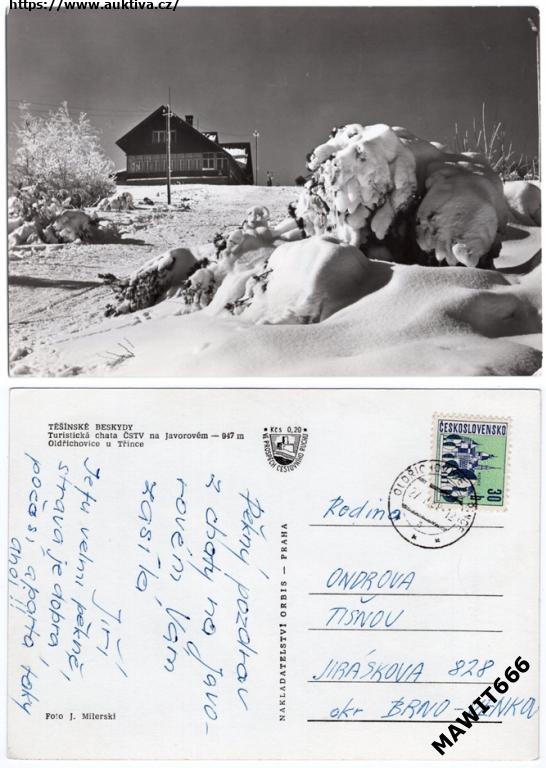 https://www.auktiva.cz/
MAWIT666
TĚŠÍNSKÉ BESKYDY
Turistická chata ČSTV na Javorovém — 947 m
Oldřichovice u Třince
Kčs 0,20
VE PROSPĚCH CESTOVNÍHO RUCHU
ČESKOSLOVENSKO
30 h
Pěkný pozdrav
z chaty na Javo-
rovém Vám
zasílá
Jiří
Je tu velmi pěkně,
strava je dobrá,
počasí, a parta taky
ahoj!!
NAKLADATELSTVÍ ORBIS — PRAHA
Rodina
ONDROVA
TIŠNOV
JIRÁSKOVA 828
okr BRNO-VENKOV
Foto J. Milerski
MAWIT666